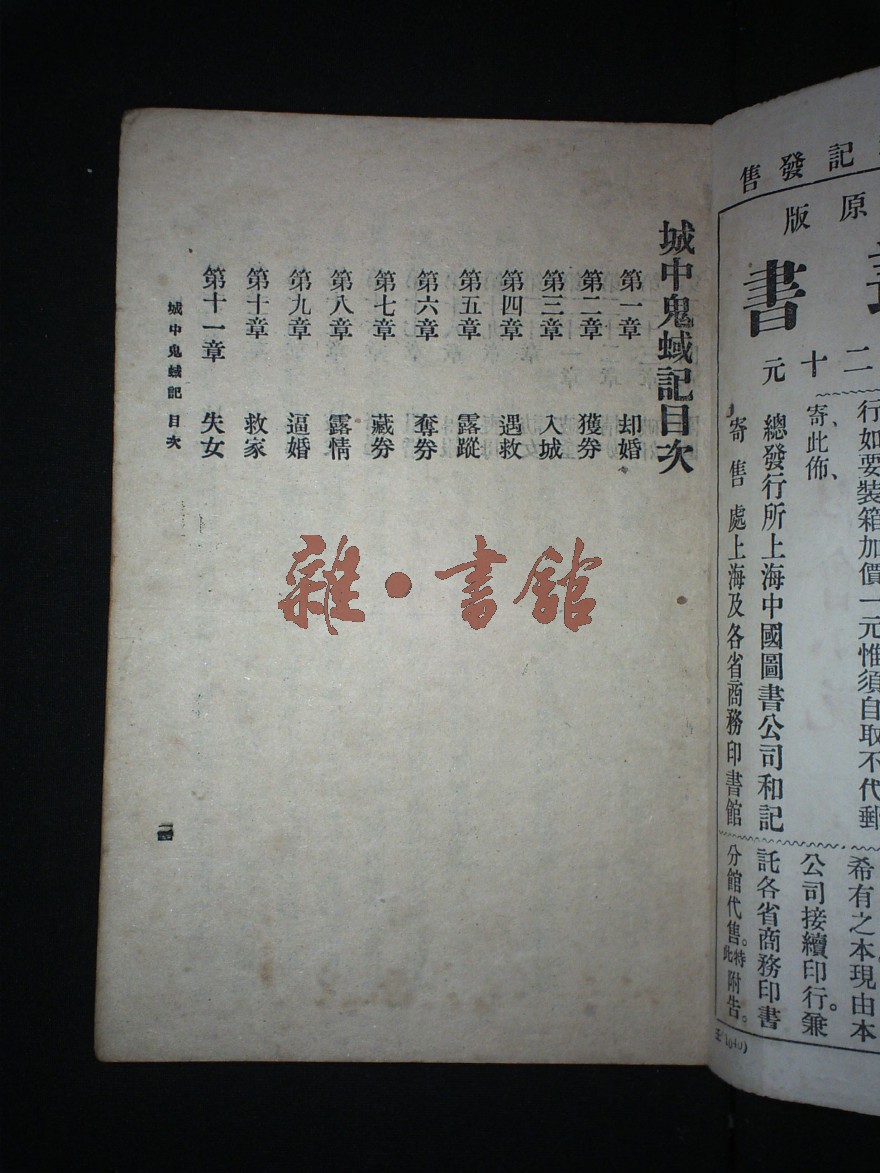 記發售
原版
書
二十元
行如要裝箱加價一元惟須自取不代郵
寄、此佈、
總發行所上海中國圖書公司和記
寄售處上海及各省商務印書館
希有之本現由本
公司接續印行。兼
託各省商務印書
分館代售。特此附告。
城中鬼蜮記目次
第一章 却婚
第二章 獲券
第三章 入城
第四章 遇救
第五章 露蹤
第六章 奪券
第七章 藏券
第八章 露情
第九章 逼婚
第十章 救家
第十一章 失女
城中鬼蜮記 目次
一
雜·書館